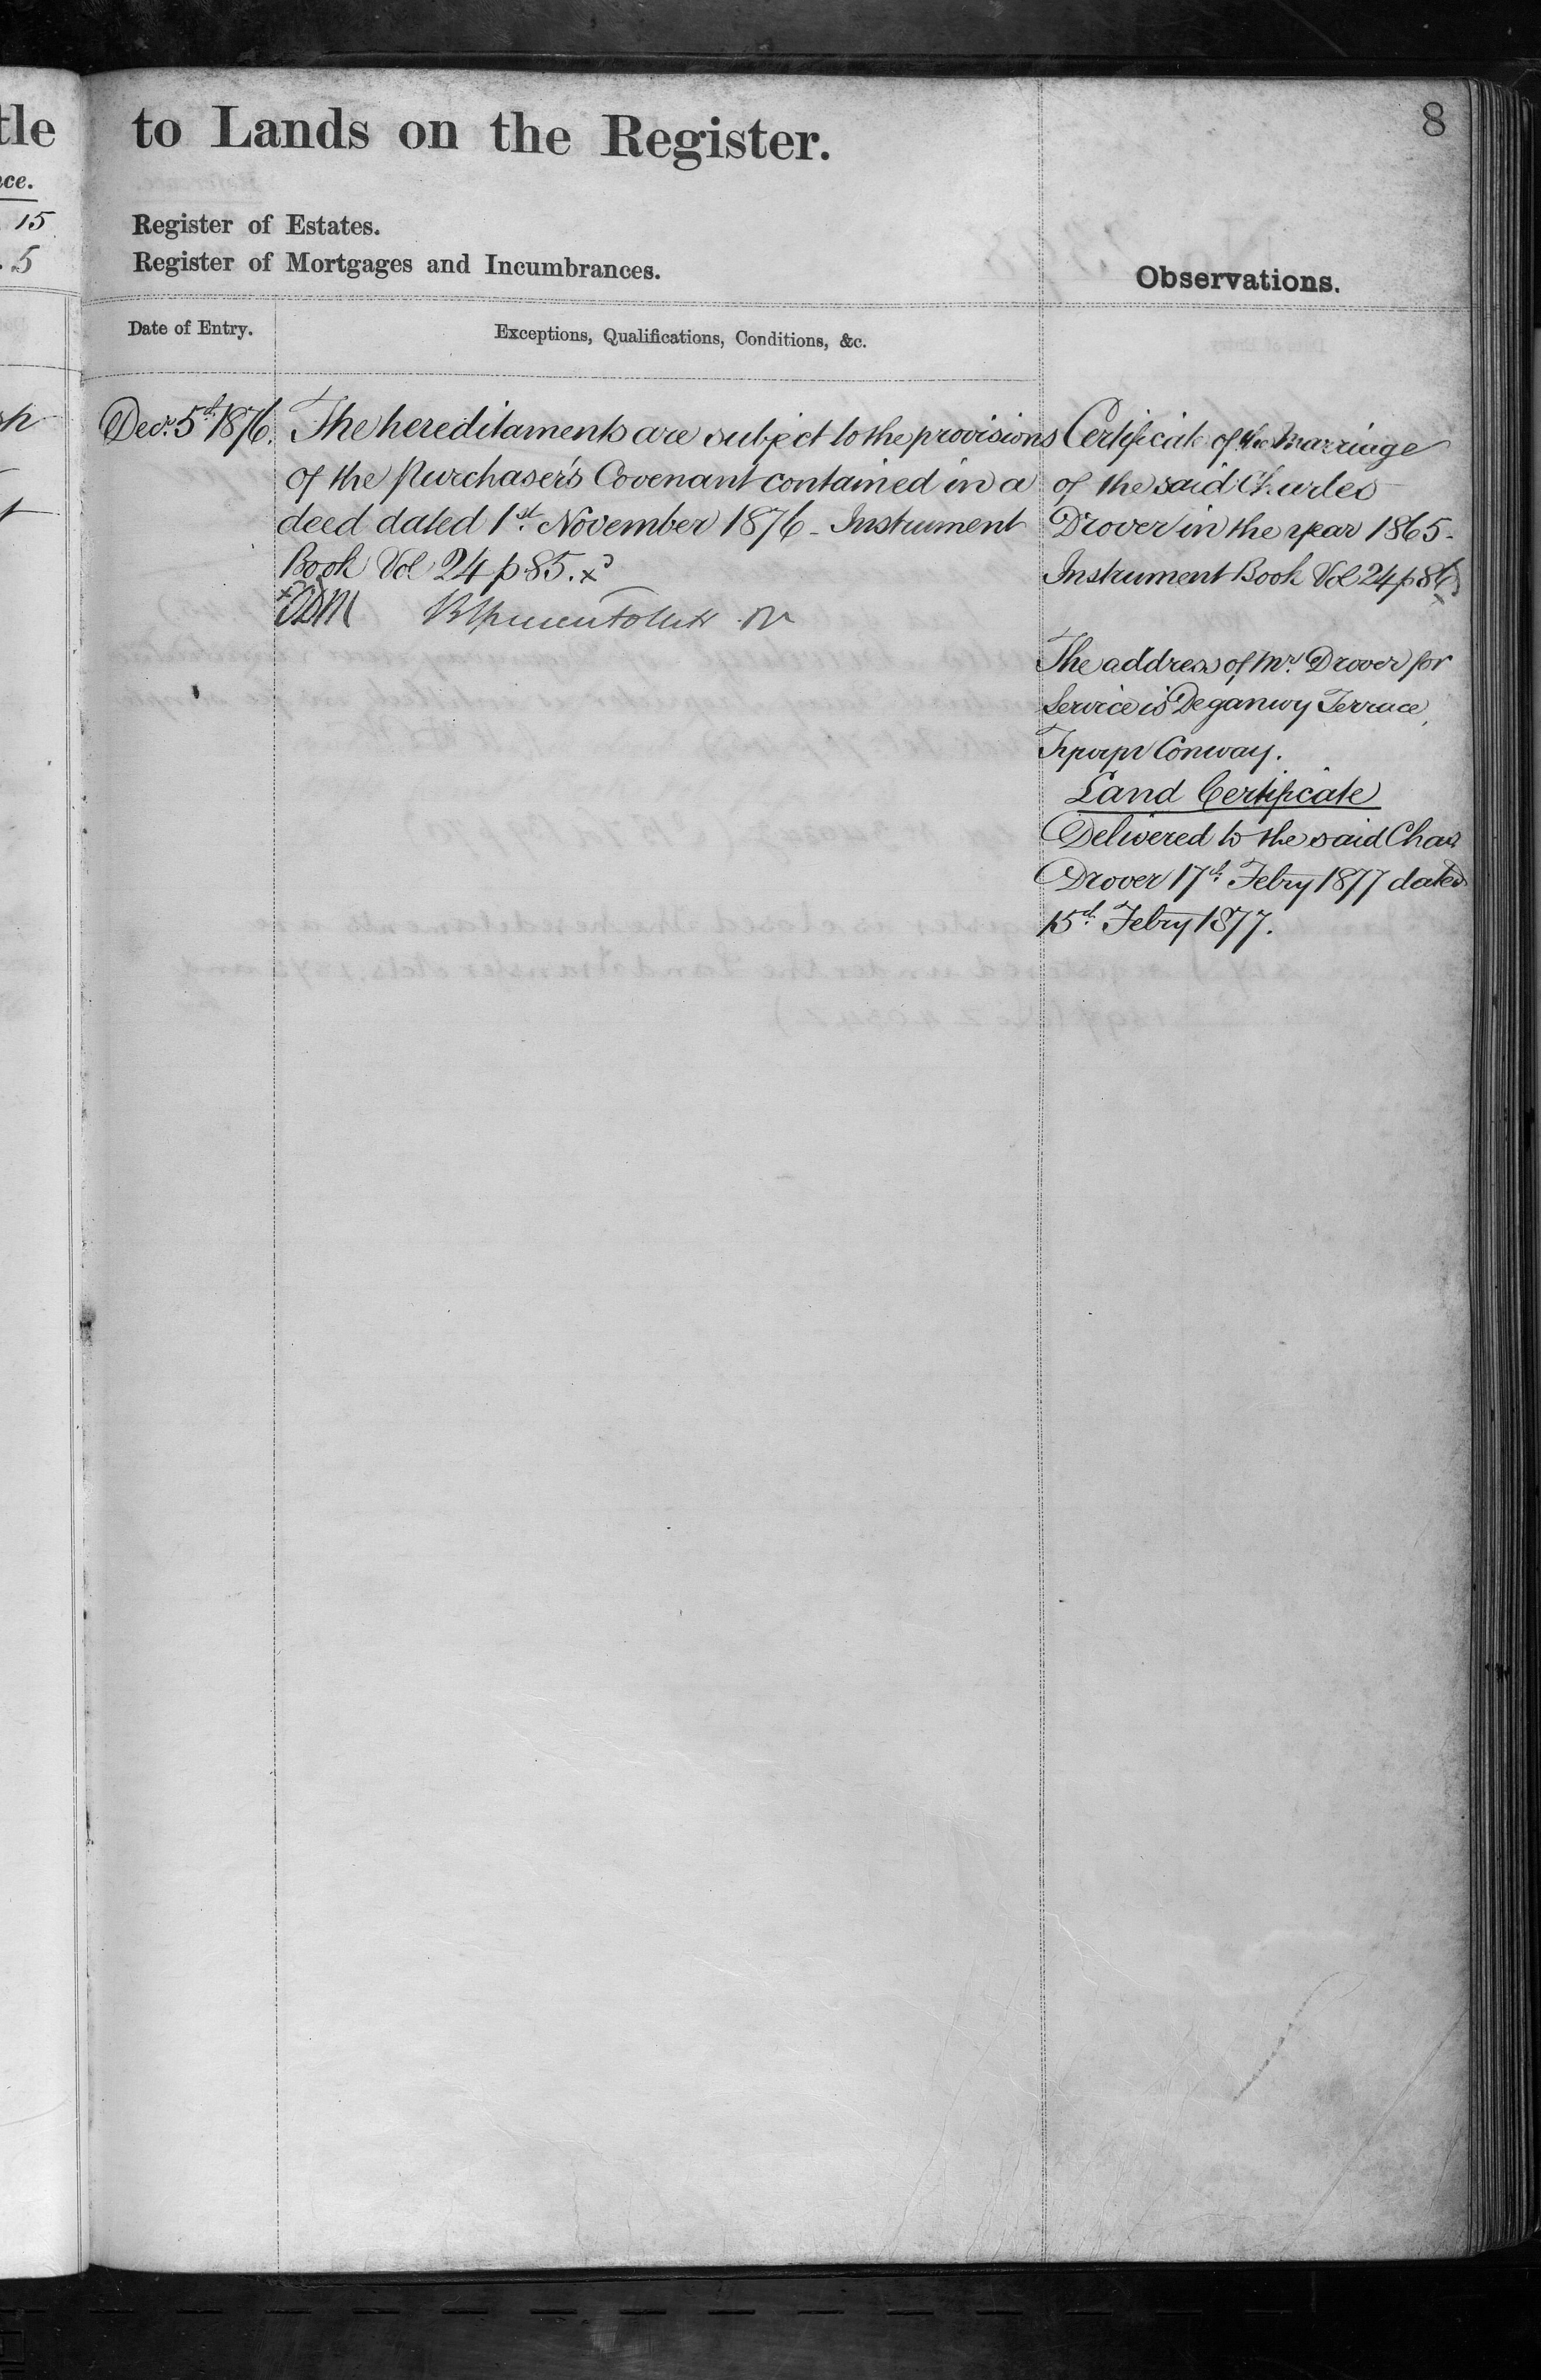 8
to Lands on the Register.
Register of Estates.
Register of Mortgages and Incumbrances.
Observations.
Date of Entry.
Exceptions, Qualifications, Conditions, &c.
Decr. 5th 1876.
The hereditaments are subject to the provisions
of the Purchaser's Covenant contained in a
deed dated 1st. November 1876 - Instrument
Book Vol 24 p 85. x
Certificate of the Marriage
of the said Charles
Drover in the year 1865-
Instrument Book Vol 24 p 86
x
The address of Mr. Drover for
Service is Deganwy Terrace,
Conway.
Land Certificate
Delivered to the said Chas
Drover 17th Febry 1877 dated
15th Febry 1877.
tle
ce.
15
5